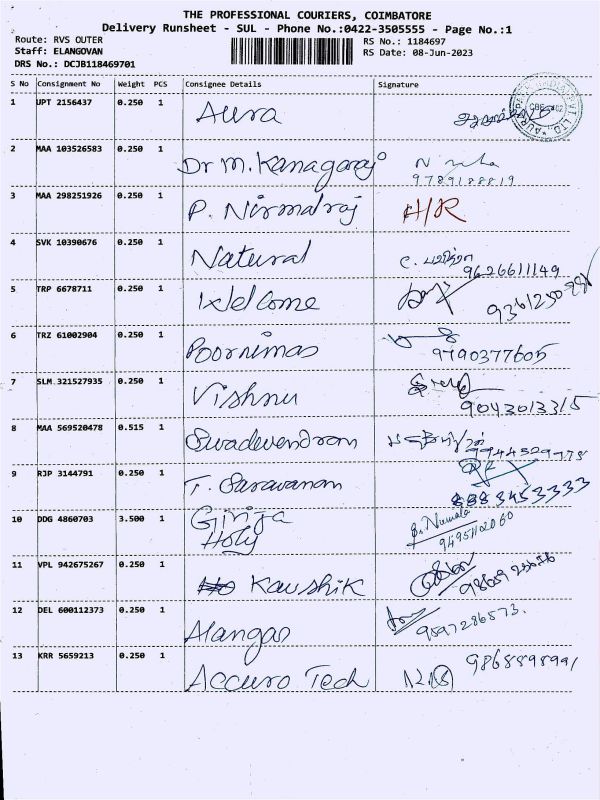 THE PROFESSIONAL COURIERS, COIMBATORE
Delivery Runsheet - SUL - Phone No.:0422-3505555 - Page No.:1
Route: RVS OUTER RS No.: 1184697
Staff: ELANGOVAN RS Date: 08-Jun-2023
DRS No.: DCJB118469701
S No Consignment No Weight PCS Consignee Details Signature
1 UPT 2156437 0.250 1 Aura
2 MAA 103526583 0.250 1 Dr M. Kanagaraj
9789188819
3 MAA 298251926 0.250 1 P. Nirmalraj H/R
4 SVK 10390676 0.250 1 Natural
9626611149
5 TRP 6678711 0.250 1 Welcome
6 TRZ 61002904 0.250 1 Poornimas
9790377605
7 SLM 321527935 0.250 1 Vishnu
9043013315
8 MAA 569520478 0.515 1 Swadevendram
9 RJP 3144791 0.250 1 T. Saravanan
8883453333
10 DDG 4860703 3.500 1 Girija
Holy
11 VPL 942675267 0.250 1 Kaushik
12 DEL 600112373 0.250 1 Alangar
9597286573.
13 KRR 5659213 0.250 1 Accuro Tech